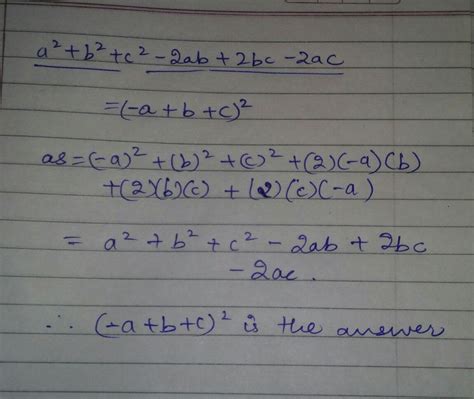 a² + b² + c² - 2ab + 2bc - 2ac
= (-a + b + c)²
as = (-a)² + (b)² + (c)² + (2)(-a)(b)
+ (2)(b)(c) + (2)(c)(-a)
= a² + b² + c² - 2ab + 2bc
- 2ac.
∴ (-a + b + c)² is the answer